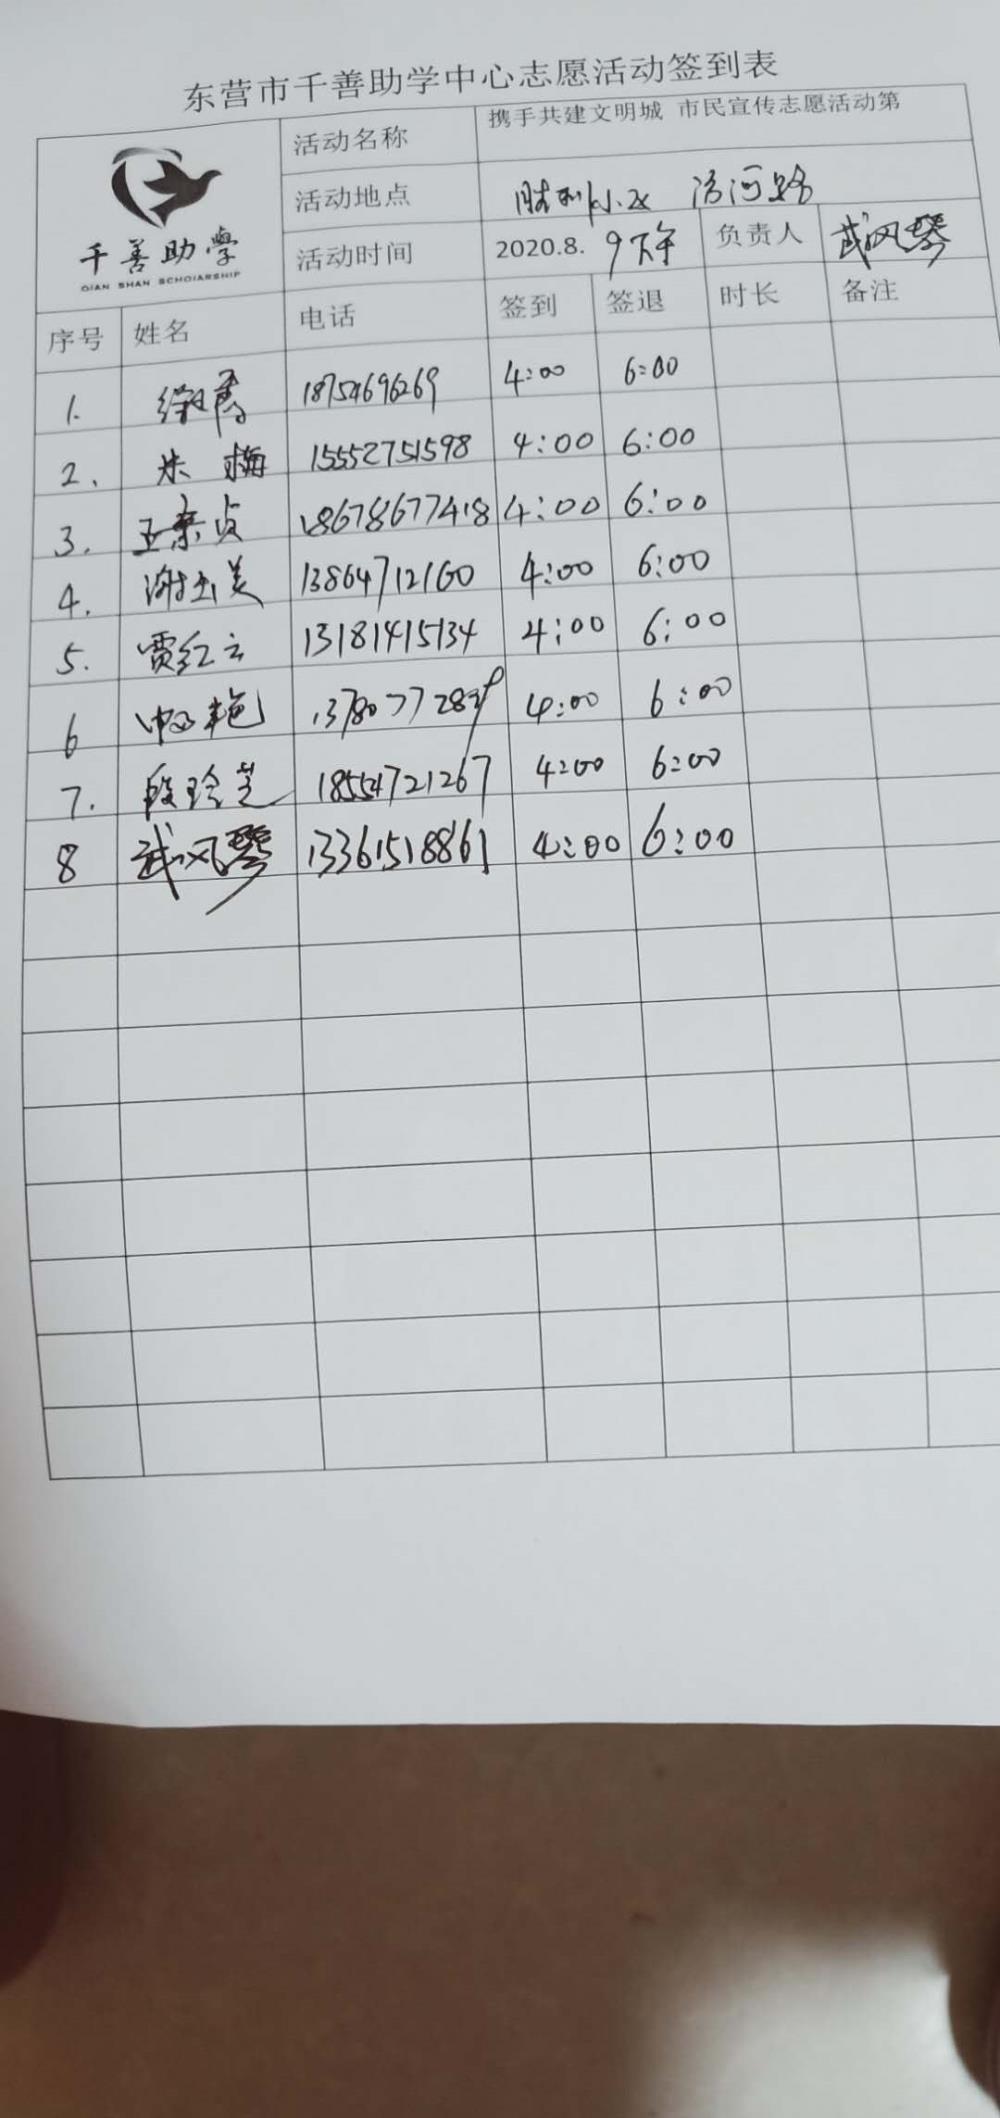 东营市千善助学中心志愿活动签到表
千善助學
QIAN SHAN SCHOIARSHIP
活动名称 携手共建文明城 市民宣传志愿活动第
活动地点 胜利小区 河路
活动时间 2020.8. 9下午 负责人 武风琴
序号 姓名 电话 签到 签退 时长 备注
1. 18754696269 4:00 6:00
2. 朱梅 15552751598 4:00 6:00
3. 王荣贞 18678677418 4:00 6:00
4. 谢玉美 13864712160 4:00 6:00
5. 贾红云 13181415134 4:00 6:00
6 4:00 6:00
7. 段玲芝 18554721267 4:00 6:00
8 武风琴 13361518861 4:00 6:00